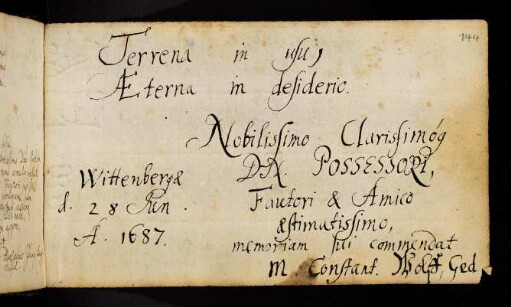 144
Terrena in usu,
Æterna in desiderio.
Nobilissimo Clarissimóq
DN. POSSESSORI,
Fautori & Amico
æstimatissimo,
memoriam sui commendat
M. Constant. Wolff, Ged.
Wittenbergæ
d. 28 Jun.
A. 1687.